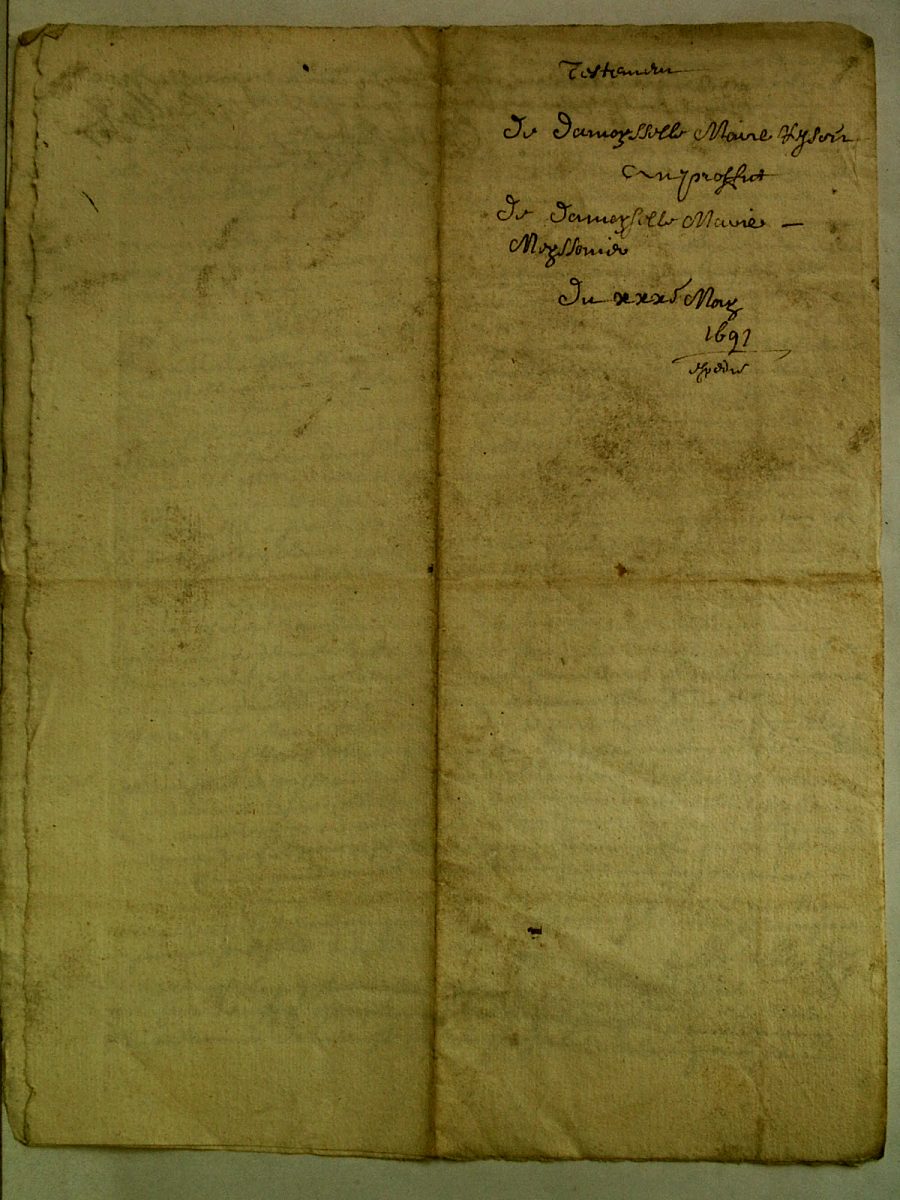 Testament
De Damoysselle Marie
au proffict
De Damoyselle Marie –
Meyssonier
Du xxx5 May
1691
expedié